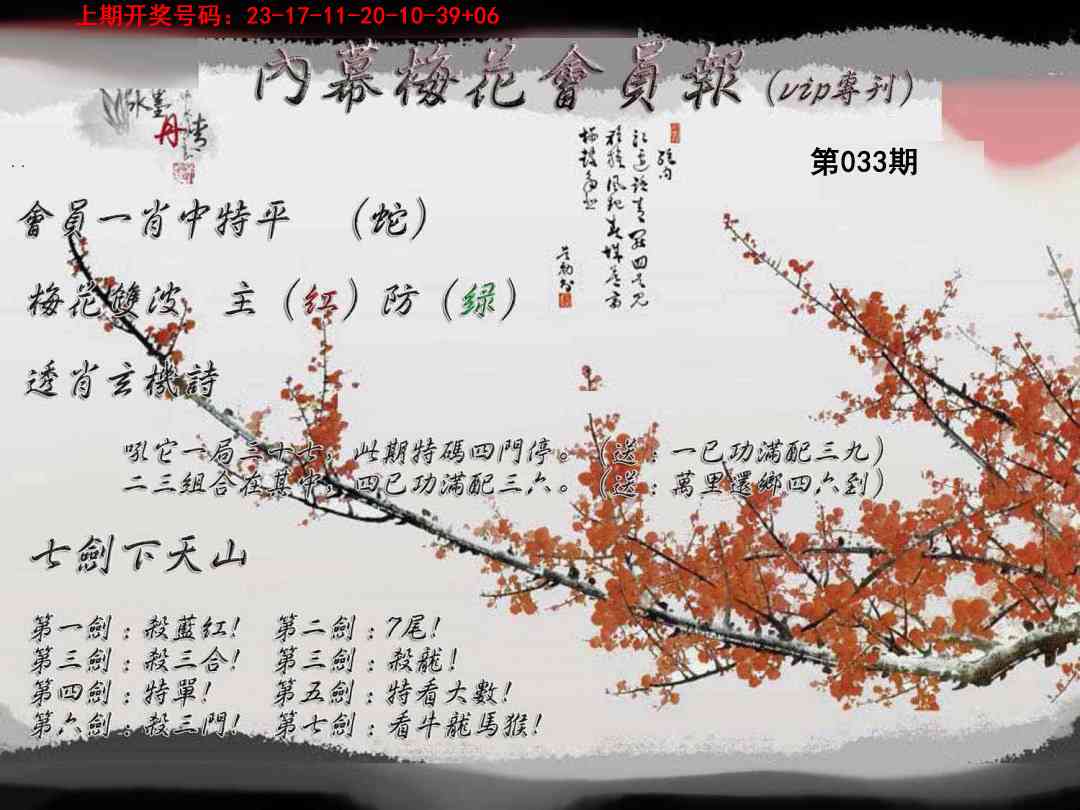 上期开奖号码：23-17-11-20-10-39+06
內幕梅花會員報（vip專刊）
水墨丹青
第033期
會員一肖中特平　（蛇）
梅花雙波　主（红）防（绿）
透肖玄機詩
吼它一局三十七，此期特碼四門停。（送：一已功滿配三九）
二三組合在其中，四已功滿配三六。（送：萬里還鄉四六到）
七劍下天山
第一劍：殺藍紅！　第二劍：7尾！
第三劍：殺三合！　第三劍：殺龍！
第四劍：特單！　第五劍：特看大數！
第六劍：殺三門！　第七劍：看牛龍馬猴！